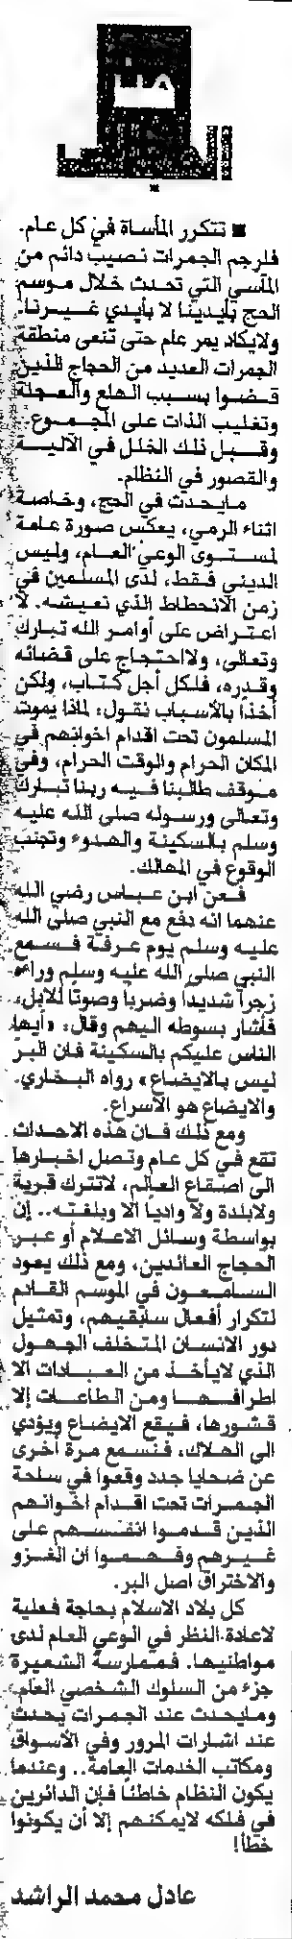 هنا
■ تتكرر المأساة في كل عام.
فلرجم الجمرات نصيب دائم من
المآسي التي تحدث خلال موسم
الحج بأيدينا لا بأيدي غيرنا.
ولايكاد يمر عام حتى تنعى منطقة
الجمرات العديد من الحجاج الذين
قضوا بسبب الهلع والعجلة
وتغليب الذات على المجموع.
وقبل ذلك الخلل في الآلية
والقصور في النظام.
مايحدث في الحج، وخاصة
اثناء الرمي، يعكس صورة عامة
لمستوى الوعي العام، وليس
الديني فقط، لدى المسلمين في
زمن الانحطاط الذي نعيشه. لا
اعتراض على أوامر الله تبارك
وتعالى، ولااحتجاج على قضائه
وقدره، فلكل أجل كتاب، ولكن
أخذاً بالأسباب نقول: لماذا يموت
المسلمون تحت اقدام اخوانهم في
المكان الحرام والوقت الحرام، وفي
موقف طالبنا فيه ربنا تبارك
وتعالى ورسوله صلى الله عليه
وسلم بالسكينة والهدوء وتجنب
الوقوع في المهالك.
فعن ابن عباس رضي الله
عنهما انه دفع مع النبي صلى الله
عليه وسلم يوم عرفة فسمع
النبي صلى الله عليه وسلم وراءه
زجراً شديداً وضرباً وصوتاً للابل،
فأشار بسوطه اليهم وقال: «أيها
الناس عليكم بالسكينة فان البر
ليس بالايضاع» رواه البخاري.
والايضاع هو الاسراع.
ومع ذلك فان هذه الاحداث
تقع في كل عام وتصل اخبارها
الى اصقاع العالم، لاتترك قرية
ولابلدة ولا وادياً الا وبلغته.. إن
بواسطة وسائل الاعلام أو عبر
الحجاج العائدين، ومع ذلك يعود
السامعون في الموسم القادم
لتكرار أفعال سابقيهم، وتمثيل
دور الانسان المتخلف الجهول
الذي لايأخذ من العبادات الا
اطرافها ومن الطاعات إلا
قشورها، فيقع الايضاع ويؤدي
الى الهلاك، فنسمع مرة أخرى
عن ضحايا جدد وقعوا في ساحة
الجمرات تحت اقدام اخوانهم
الذين قدموا انفسهم على
غيرهم وفهموا ان الغزو
والاختراق اصل البر.
كل بلاد الاسلام بحاجة فعلية
لاعادة النظر في الوعي العام لدى
مواطنيها. فممارسة الشعيرة
جزء من السلوك الشخصي العام.
ومايحدث عند الجمرات يحدث
عند اشارات المرور وفي الأسواق
ومكاتب الخدمات العامة.. وعندما
يكون النظام خاطئاً فإن الدائرين
في فلكه لايمكنهم إلا أن يكونوا
خطأ!
عادل محمد الراشد